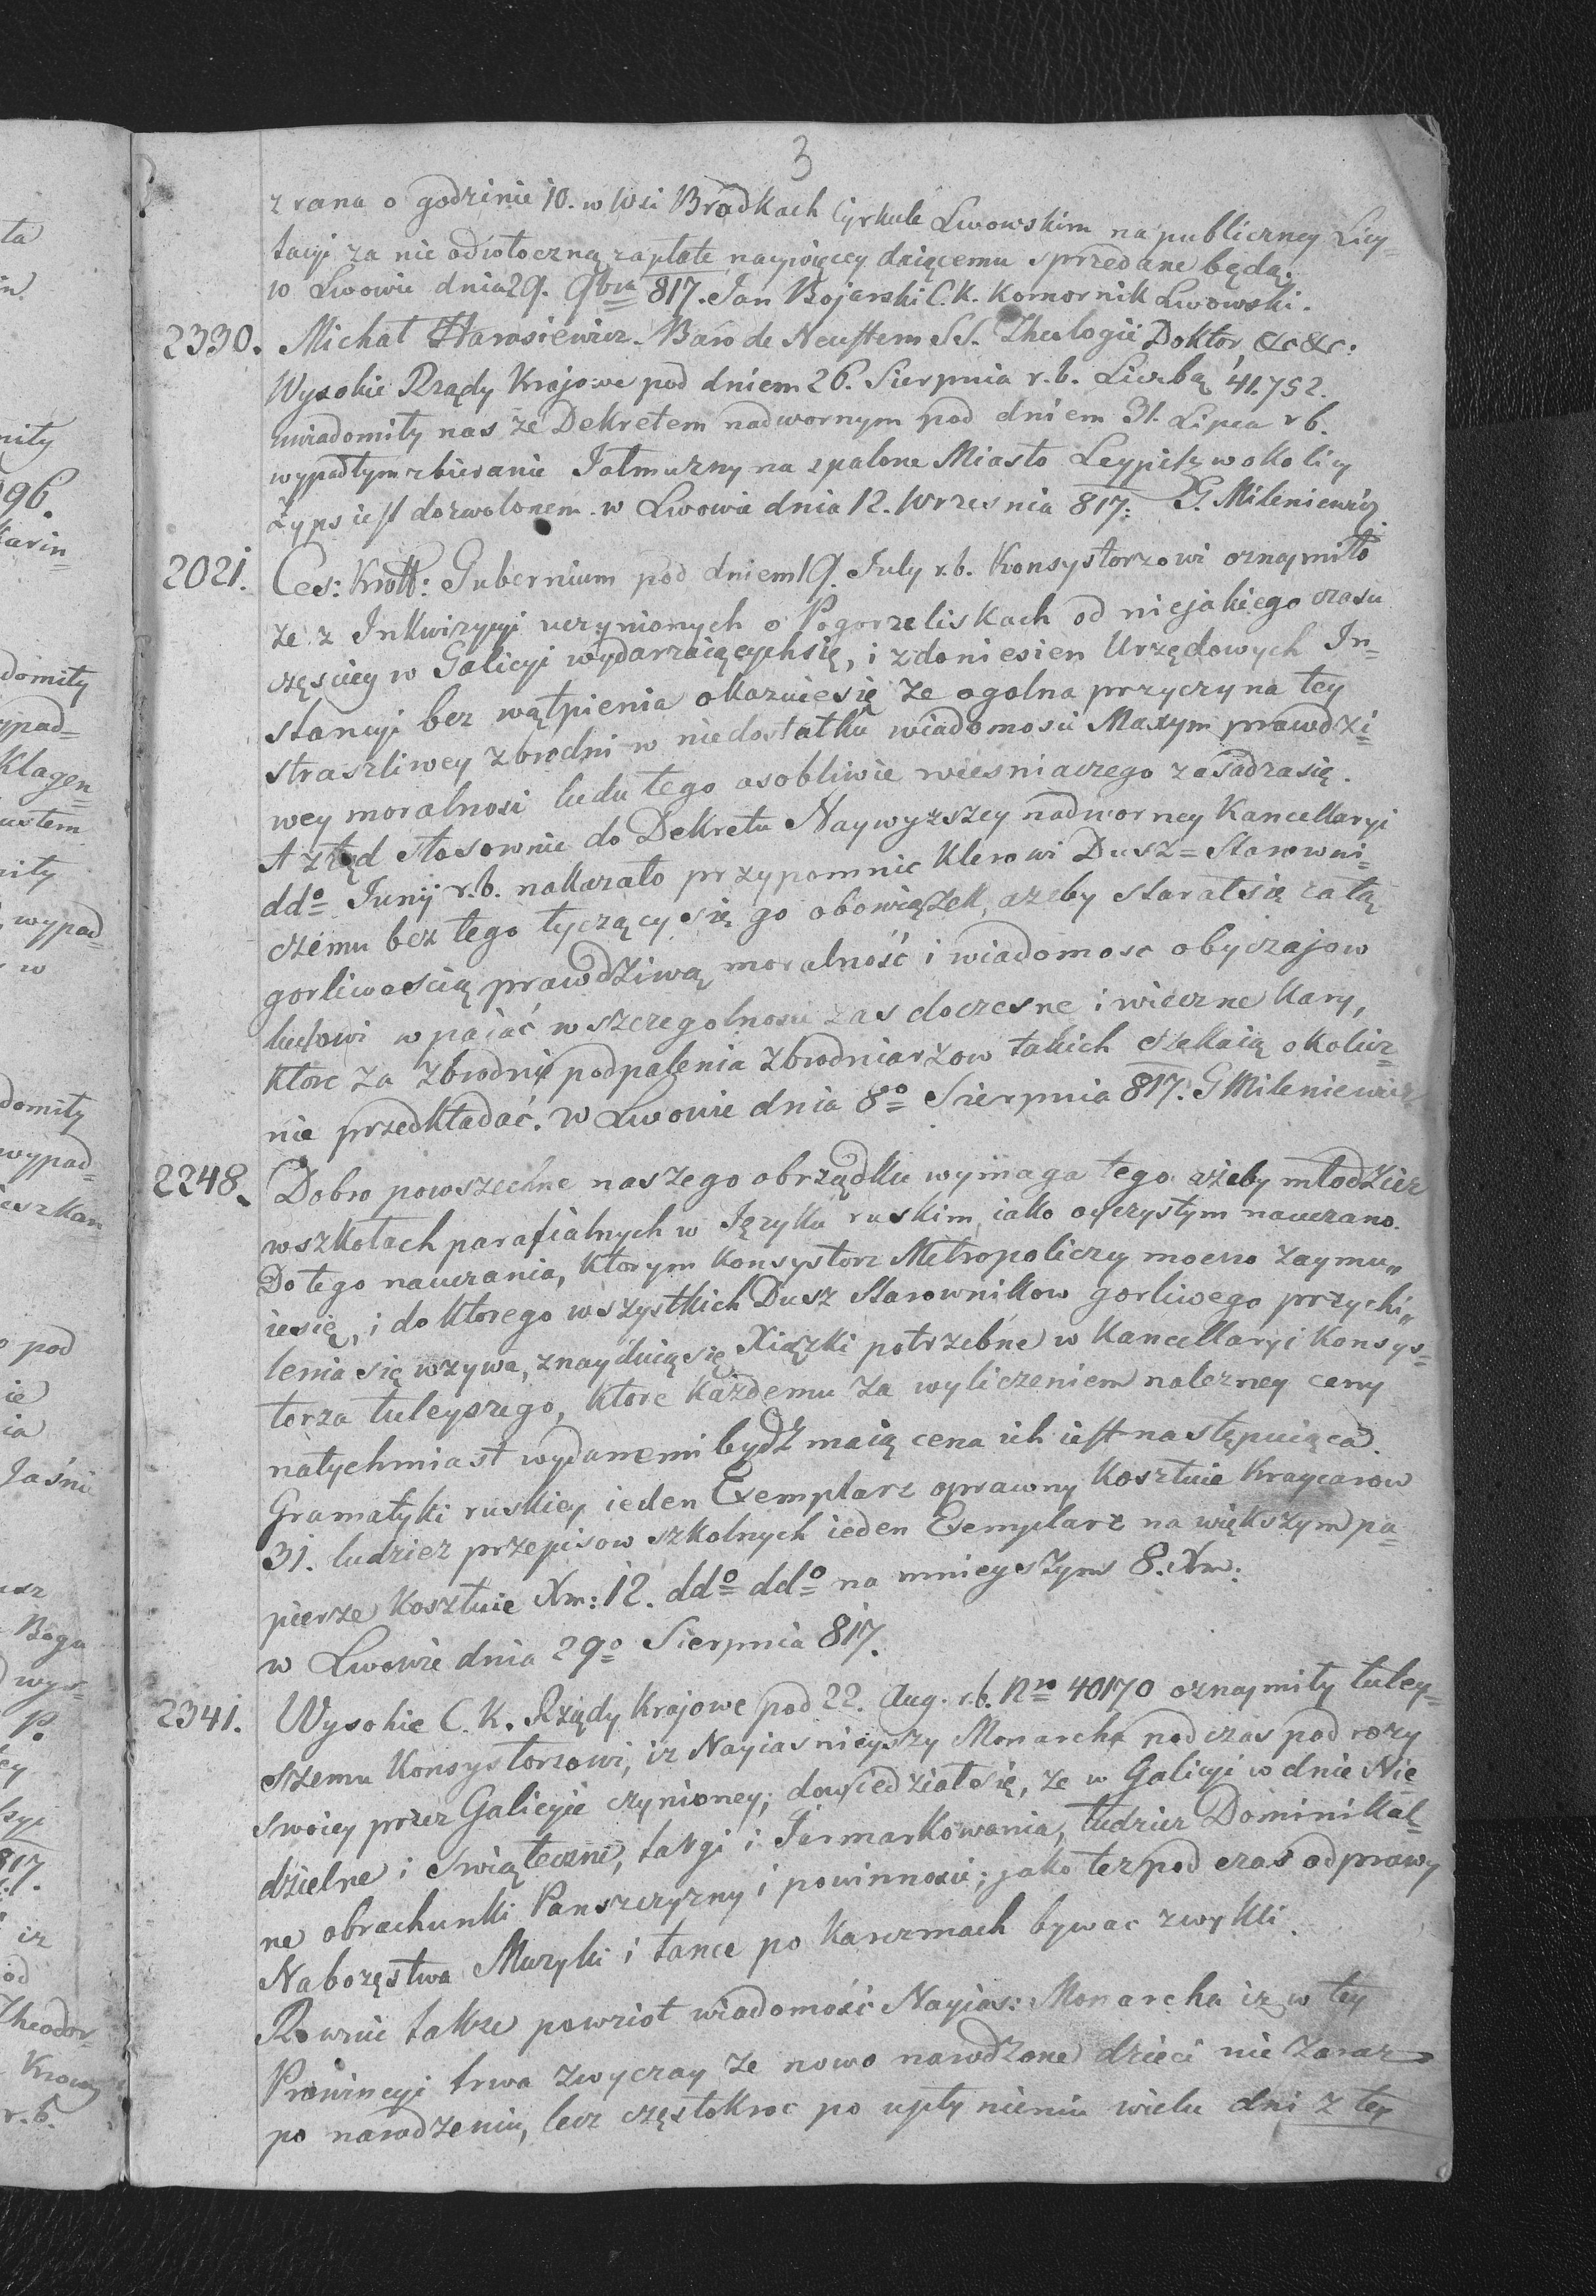 3
z rana o godzinie 10. w Wsi Brodkach Cyrkule Lwowskim na publiczney Licy=
tacyi za nie odwłoczną zapłatę naywięcey daiącemu sprzedane będą.
w Lwowie dnia 29. 9bra 817. Jan Bojarski C.K. Komornik Lwowski.
2330. Michał Harasiewicz Baro de Neustern SS. Theologii Doktor &c &c:
Wysokie Rządy Krajowe pod dniem 26. Sierpnia r.b. Liczbą 41.752.
uwiadomiły nas że Dekretem nadwornym pod dniem 31. Lipca r b.
wypadłym zbieranie Jałmużny na spalone Miasto Leypitz w okolicy
Zyps iest dozwolonem. w Lwowie dnia 12. Wrzesnia 817. G. Mileniewicz
2021. Ces: Kroll: Gubernium pod dniem 19. July r.b. Konsystorzowi oznaymiło
że z Inkwizycyi uczynionych o Pogorzeliskach od niejakiego czasu
częsciey w Galicyi wydarzaiącychsię, i z doniesien Urzędowych In=
stancyi bez wątpienia okazuiesię że ogolna przyczyna tey
straszliwey zbrodni w niedostatku wiadomosci Maxym prawdzi=
wey moralnosci ludu tego osobliwie wiesniaczego zasadzasię.
A ztąd stosownie do Dekretu Naywyższey nadworney Kancellaryi
ddo Junij r.b. nakazało przypomnic Klerowi Dusz=Starowni=
czemu bez tego tyczący się go obowiązek, ażeby starałsię całą
gorliwoscią prawdziwą moralność i wiadomosc obyczajow
ludowi wpajać w szczegolnosci zas doczesne i wieczne kary,
ktore za zbrodnię podpalenia zbrodniarżow takich czekaią okolicz=
nie przedkładać. w Lwowie dnia 8o Sierpnia 817. G Mileniewicz
2248. Dobro powszechne naszego obrządku wymaga tego ażeby młodzież
w szkołach parafialnych w Języku ruskim, iako oyczystym nauczano.
Do tego nauczania, ktorym Konsystorz Metropoliczy mocno zaymu„
iesię, i do ktorego wszystkich Dusz Starownikow gorliwego przychi„
lenia się wzywa, znayduiąsię Xiążki potrzebne w Kancellaryi Konsys=
torza tuteyszego, ktore każdemu za wyliczeniem należney ceny
natychmiast wydanemi bydź maią cena ich iest nastęupuiąca.
Gramatyki ruskiey ieden Exemplarz oprawny kosztuie Kraycarow
31. tudzież przepisow szkolnych ieden Exemplarz na większym pa=
pierze kosztuie Xm: 12. ddo ddo na mnieyszym 8. Xm:
w Lwowie dnia 29o Sierpnia 817.
2341. Wysokie C. K. Rządy Krajowe pod 22. Aug. r.b. Nro 40170 oznaymiły tutey=
szemu Konsystorzowi, iż Nayiasnieyszy Monarcha podczas podrozy
swoiey przez Galicyie czynioney; dowiedziałsię, że w Galicyi w dnie Nie=
dzielne i Swiąteczne, targi i Jarmarkowania, tudzież Dominikal=
ne obrachunki Panszczyzny i powinnosci; jako też pod czas odprawy
Nabozęstwa Muzyki i tance po karczmach bywac zwykli.
Rownie także powziął wiadomość Nayias: Monarcha iż w tey
Prowincyi trwa zwyczay że nowo narodzone dzieci nie zaraz
po narodzeniu, lecz częstokroc po upłynieniu wielu dni z tey